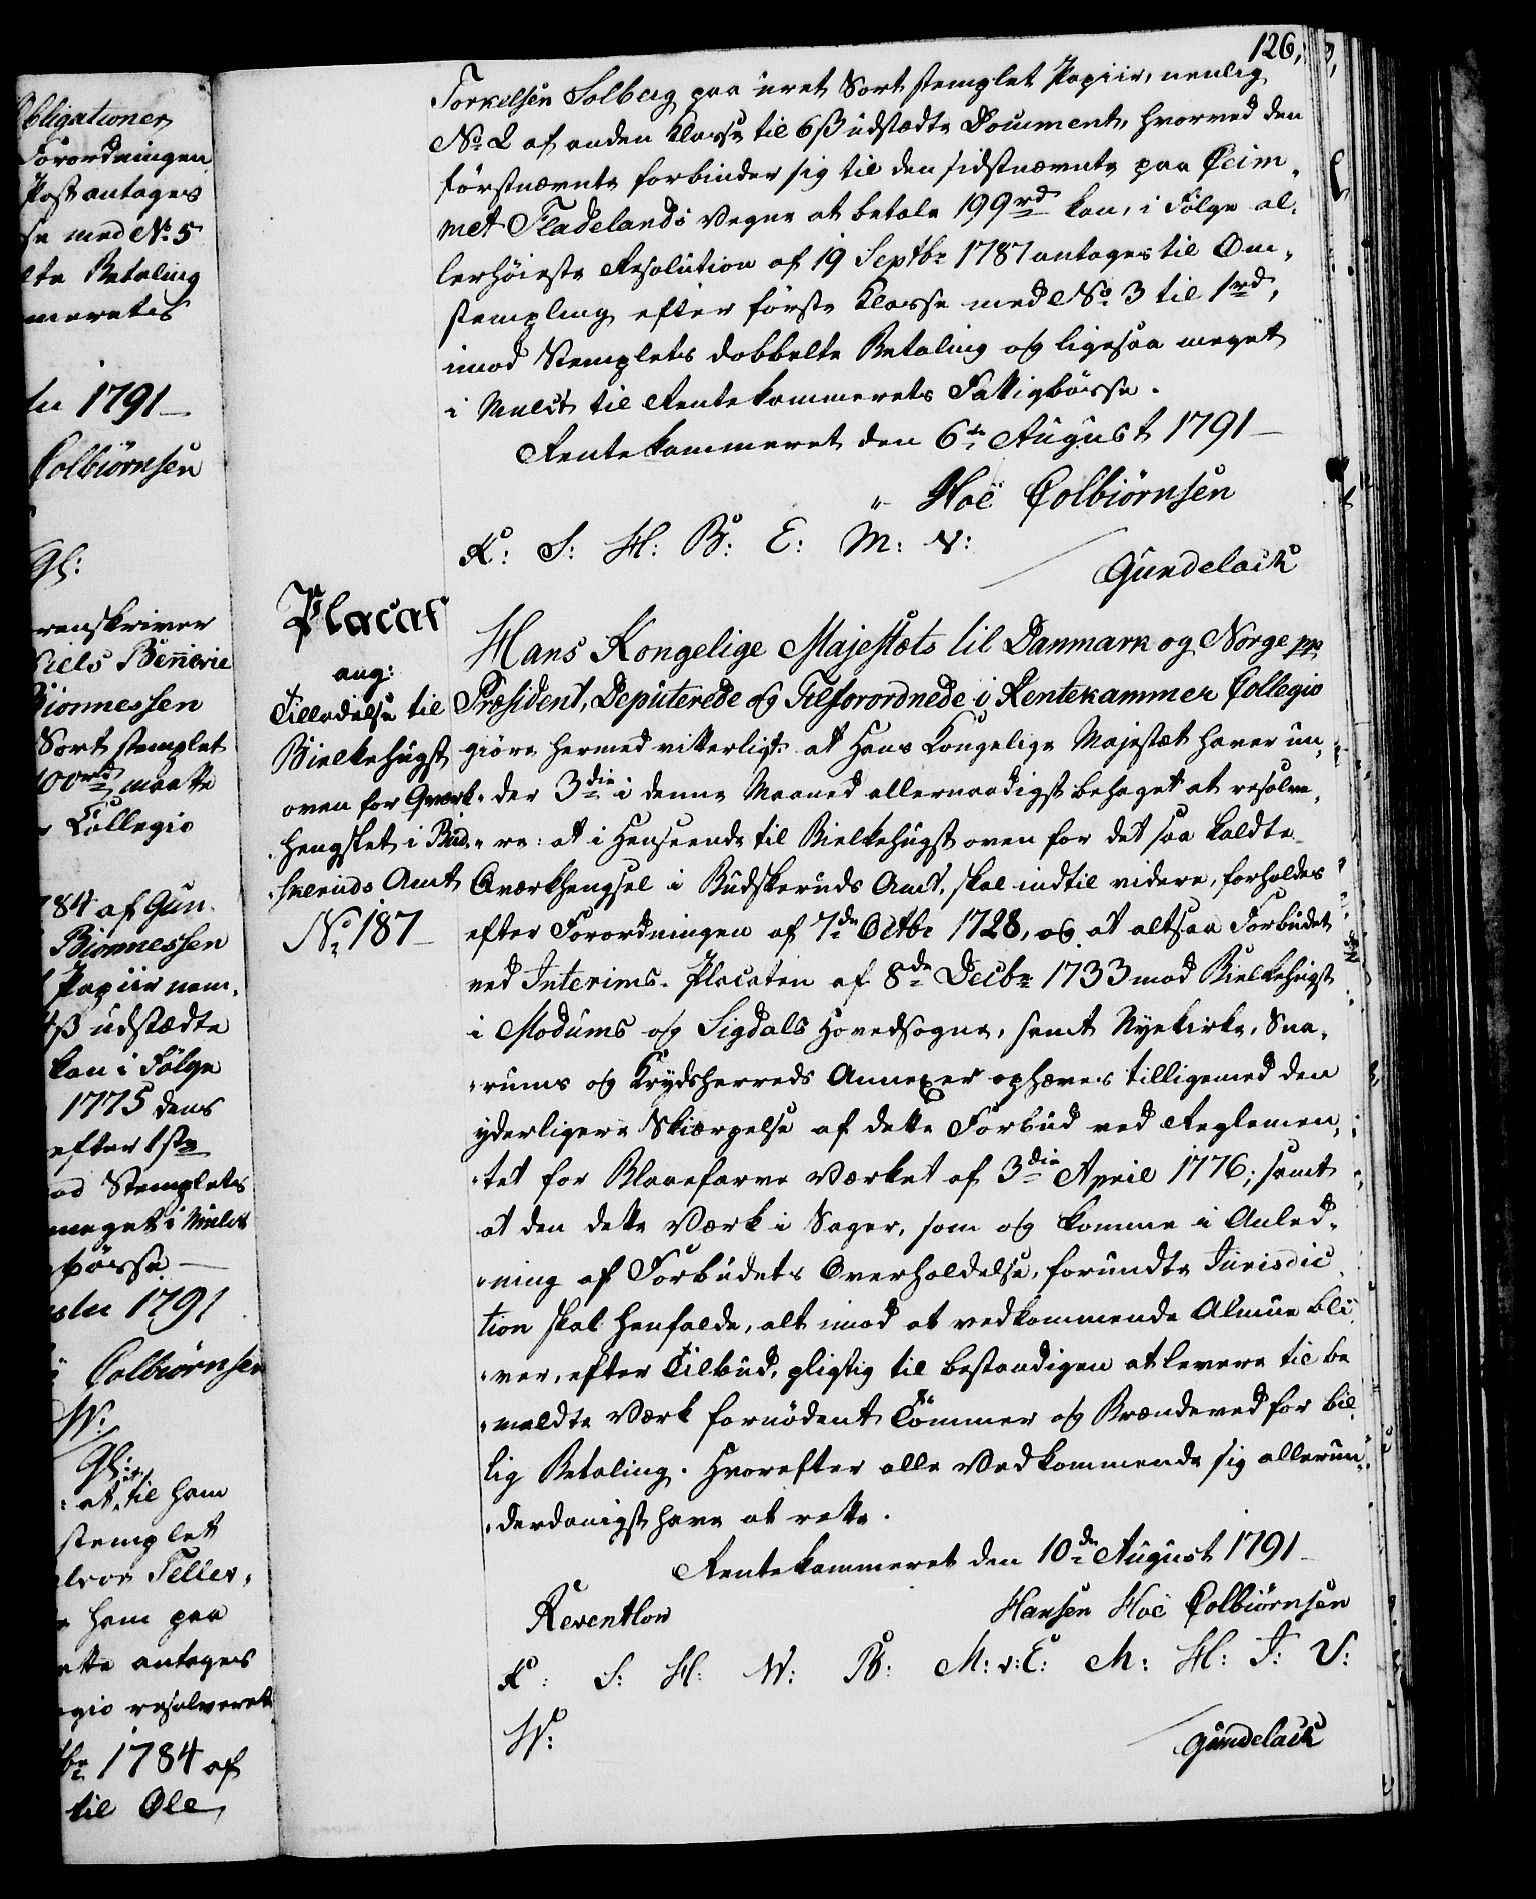 bligationer
Forordningen
Post antages
se med No. 5
lte Betaling
meretes
1791
Colbiörnsen
Gl:
renskriver
Niels Bennerie
Biönnessen
Sort stemplet
100rd maatte
Collegio
784 af Gun
Biönnessen
Papiir nem-
4ß udstædte
kan i Fölge
1775 dens
efter 1ste
od Stemplets
meget i Mulct
börse
1791
Colbiörnsen
W:
Gl:
at til ham
stemplet
Teller-
ham paa
antages
egio resolveret
br 1784 af
til Ole
126,
Torkelsen Solberg paa uret Sort stemplet Papiir, nemlig
No. 2 af anden Klasse til 6ß udstædte Document, hvorved den
förstnævnte forbinder sig til den sidstnævnte paa Qcim-
met Fladelands Vegne at betale 199rd kan, i Fölge al-
lerhöieste Resolution af 19 Septbr 1787 antages til Om-
stempling efter förste Klasse med No. 3 til 1rd,
imod Stemplets dobbelte Betaling og ligesaa meget
i Mulct til Rentekammerets Fattigbösse.
Rentekammeret den 6te August 1791
Hoë Colbiörnsen
K: S: H: B: E: M: V:
Gundelach
Placat
ang:
Tilladelse til
Bielkehugst
oven for Qværk-
hengslet i Bud-
skeruds Amt
No. 187
Hans Kongelige Majestæts til Danmark og Norge pp
Præsident, Deputerede og Tilforordnede i Rentekammer Collegio
giöre hermed vitterligt: at Hans Kongelige Majestæt haver un-
der 3die i denne Maaned allernaadigst behaget at resolve-
re: at i Henseende til Bielkehugst oven for det saa kaldte
Qværkhengsel i Budskeruds Amt, skal indtil videre, forholdes
efter Forordningen af 7de Octbr 1728, og at altsaa Forbudet
ved Interims-Placaten af 8de Decbr 1733 mod Bielkehugst
i Modums og Sigdals Hovedsogne, samt Nyekirke, Sna-
rums og Krydsherreds Annexer ophæves tilligemed den
yderligere Skiærpelse af dette Forbud ved Reglemen-
tet for Blaaefarve Værket af 3die April 1776; samt
at den dette Værk i Sager, som og komme i Anled-
ning af Forbudets Overholdelse, forundte Jurisdic
tion skal henfalde, alt imod at vedkommende Almue bli
ver, efter Tilbud, pligtig til bestandigen at levere til be
meldte Værk fornödent Tömmer og Brændeved for bil
lig Betaling. Hvorefter alle Vedkommende sig allerun-
derdanigst have at rette.
Rentekammeret den 10de August 1791
Reventlow Hansen Hoë Colbiörnsen
K: S: H: W: B: M: v: E: M: H: J: V:
W:
Gundelach